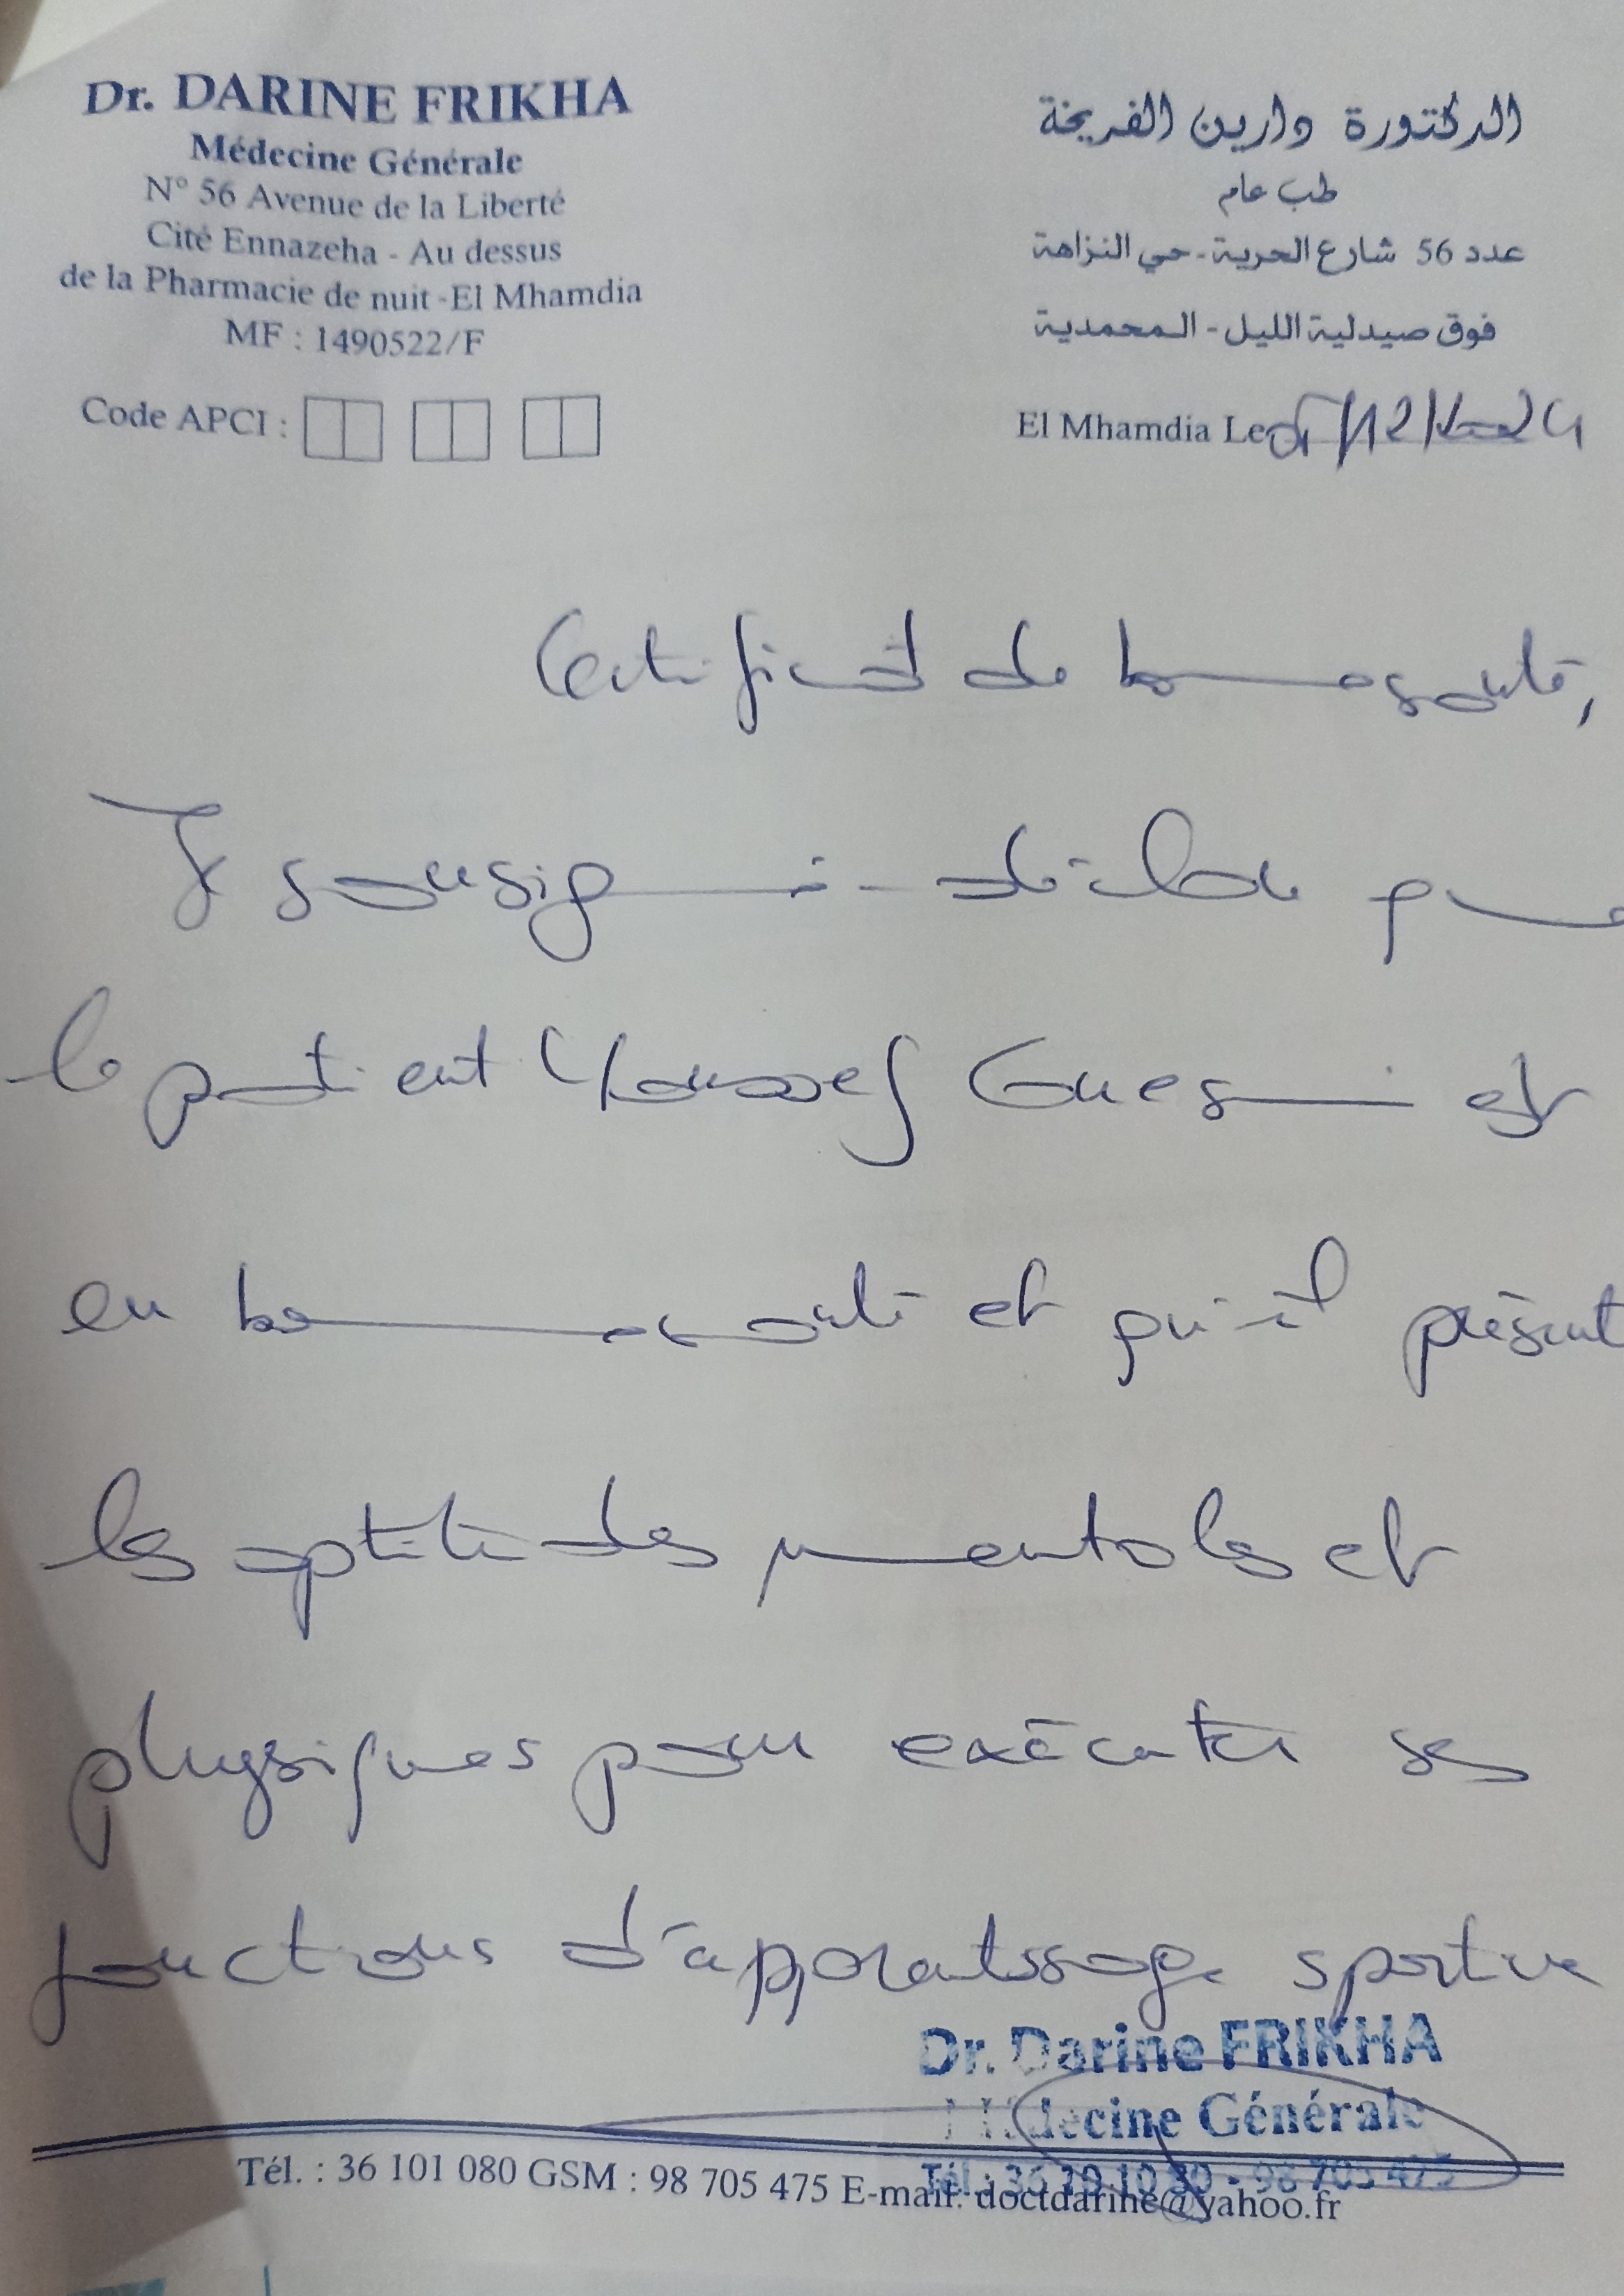 Dr. DARINE FRIKHA
Médecine Générale
N° 56 Avenue de la Liberté
Cité Ennazeha - Au dessus
de la Pharmacie de nuit - El Mhamdia
MF : 1490522/F
Code APCI :
الدكتورة دارين الفريخة
طب عام
عدد 56 شارع الحرية - حي النزاهة
فوق صيدلية الليل - المحمدية
El Mhamdia Le
Certificat de bonne santé,
Je soussigné déclare que
le patient Youssef Guesmi est
en bonne santé et qu'il présent
les aptitudes mentales et
physiques pour exécuter ses
fonctions d'apprentissage sportive
Dr. Darine FRIKHA
Médecine Générale
Tél. : 36 10 10 80 - 98 705 475
Tél. : 36 101 080 GSM : 98 705 475 E-mail: doctdarine@yahoo.fr